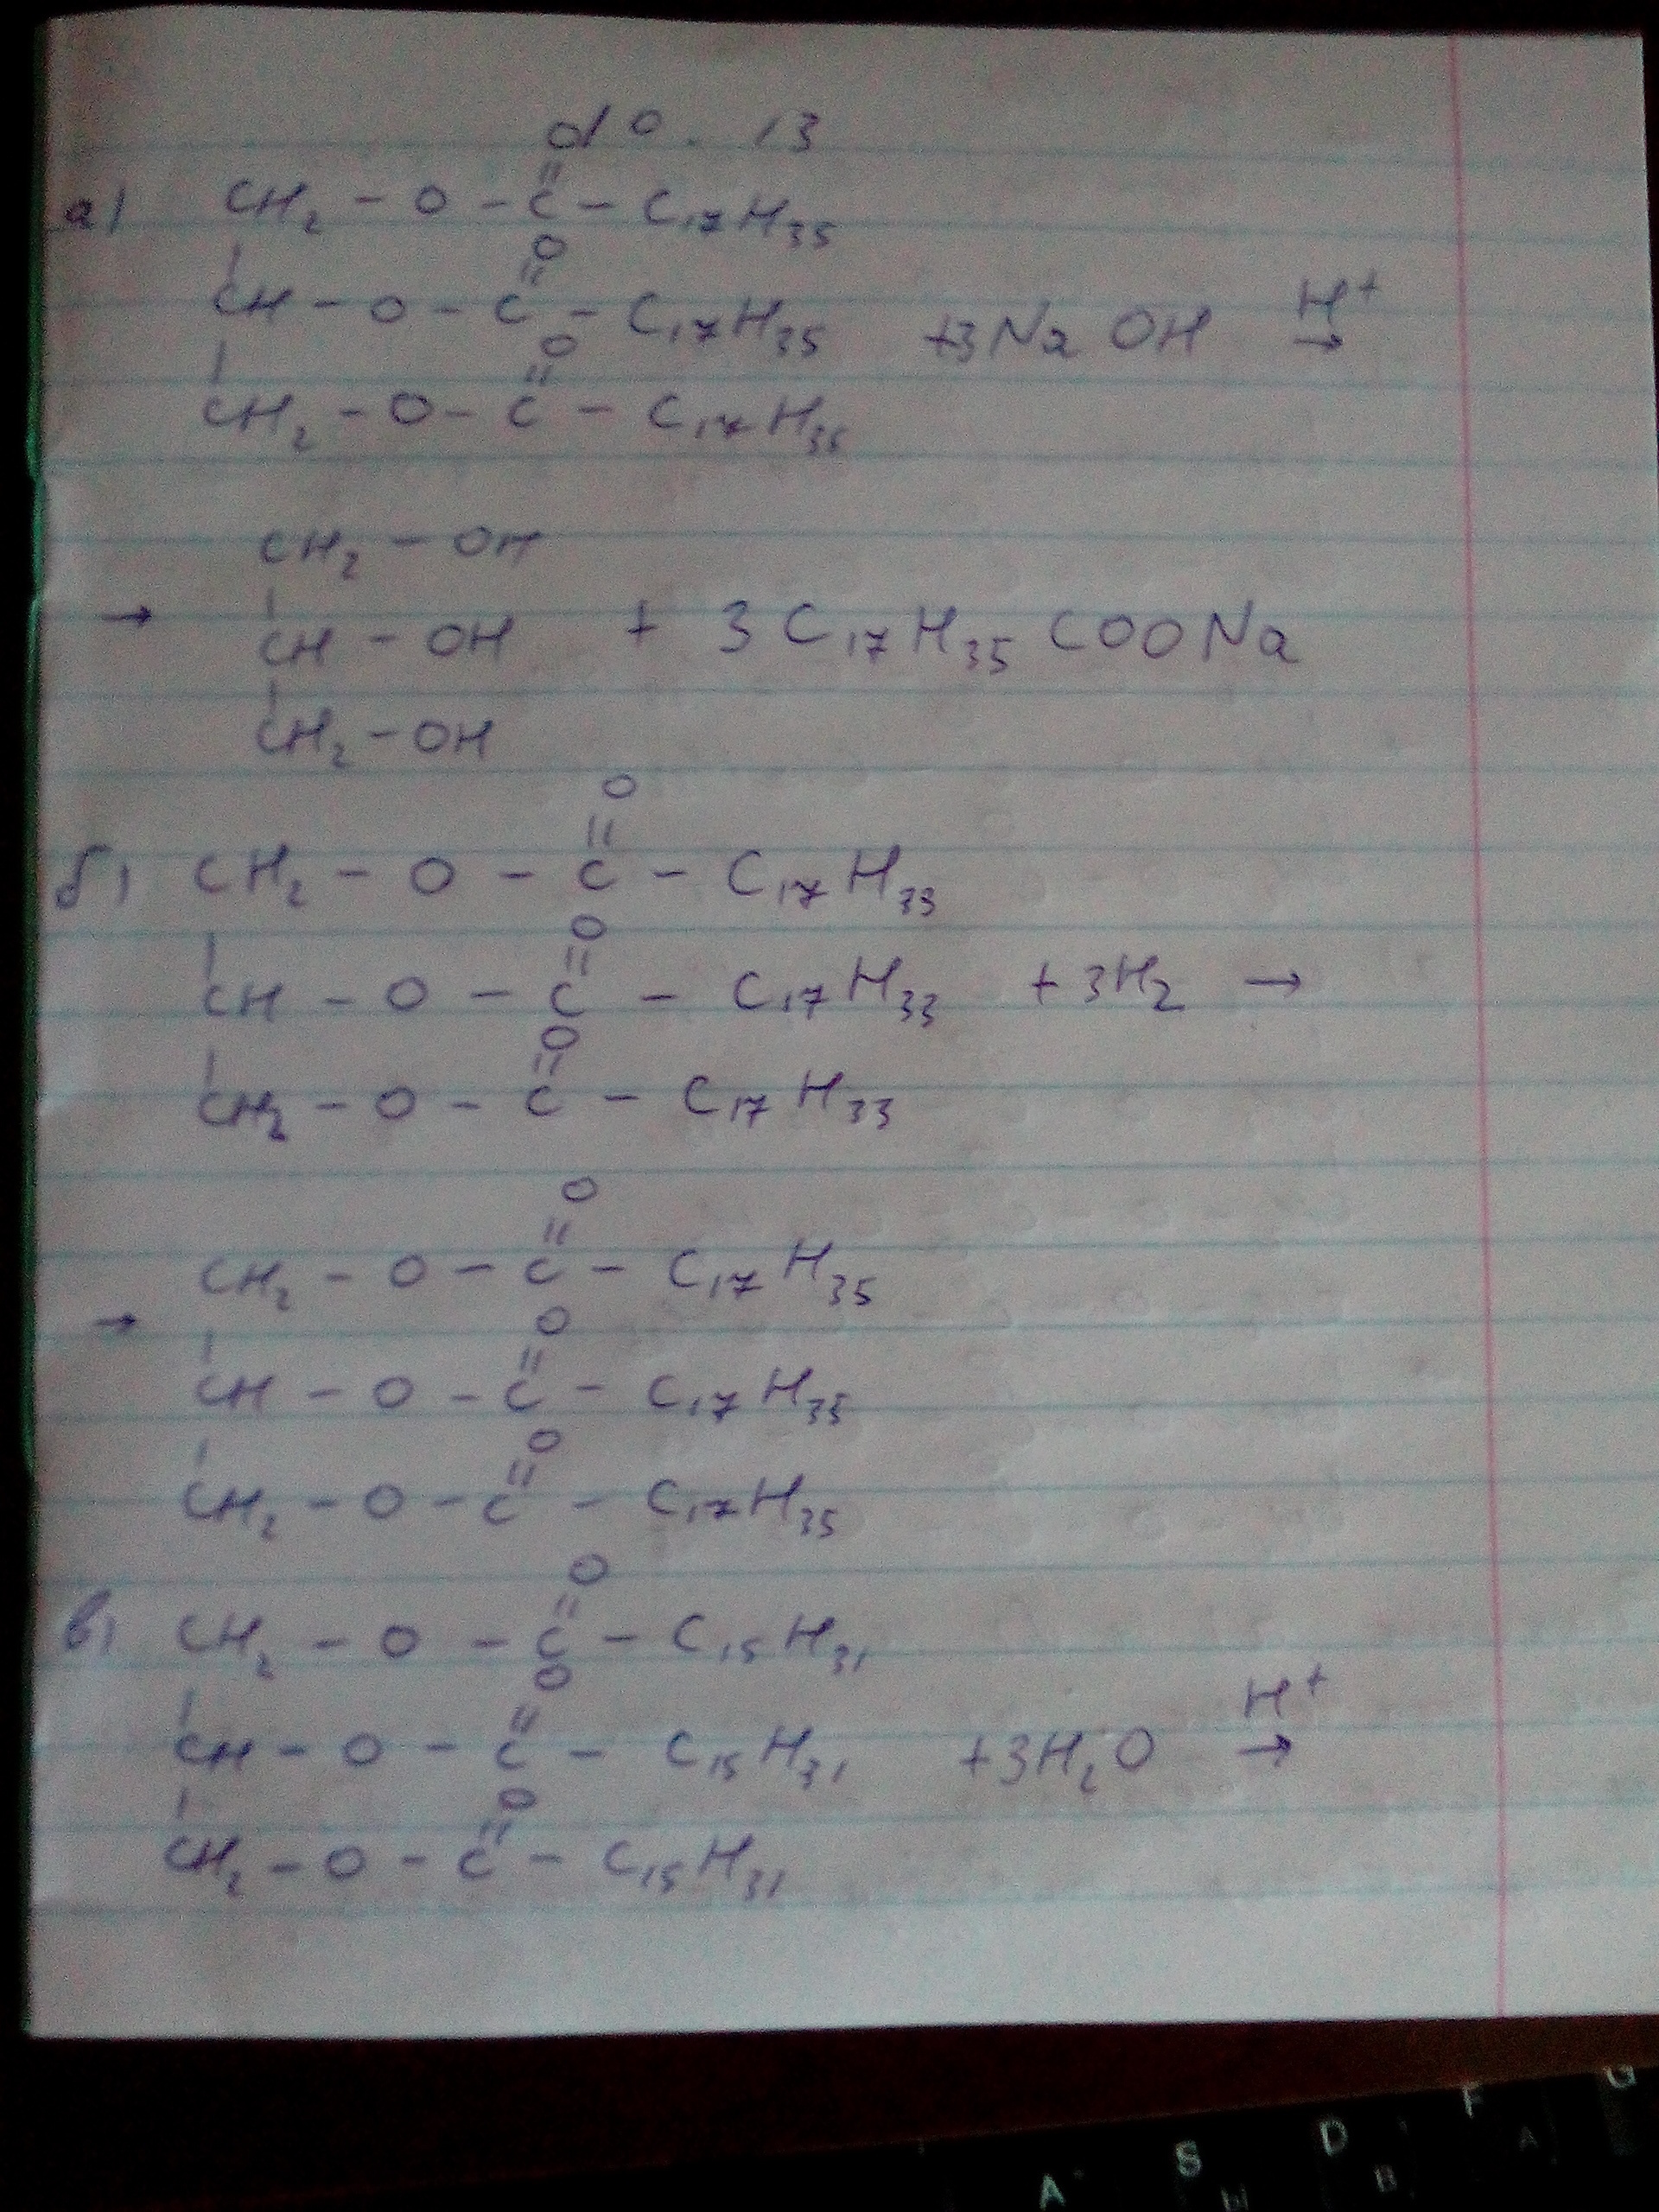 №. 13
O
||
а) CH₂ – O – C – C₁₇H₃₅
| O
||
CH – O – C – C₁₇H₃₅ +3NaOH H⁺ →
| O
||
CH₂ – O – C – C₁₇H₃₅
CH₂ – OH
|
→ CH – OH + 3C₁₇H₃₅COONa
|
CH₂ – OH
O
||
б) CH₂ – O – C – C₁₇H₃₃
| O
||
CH – O – C – C₁₇H₃₃ + 3H₂ →
| O
||
CH₂ – O – C – C₁₇H₃₃
O
||
CH₂ – O – C – C₁₇H₃₅
→ | O
||
CH – O – C – C₁₇H₃₅
| O
||
CH₂ – O – C – C₁₇H₃₅
O
||
в) CH₂ – O – C – C₁₅H₃₁
| O
||
CH – O – C – C₁₅H₃₁ +3H₂O H⁺ →
| O
||
CH₂ – O – C – C₁₅H₃₁
A S D F G
Ы В А